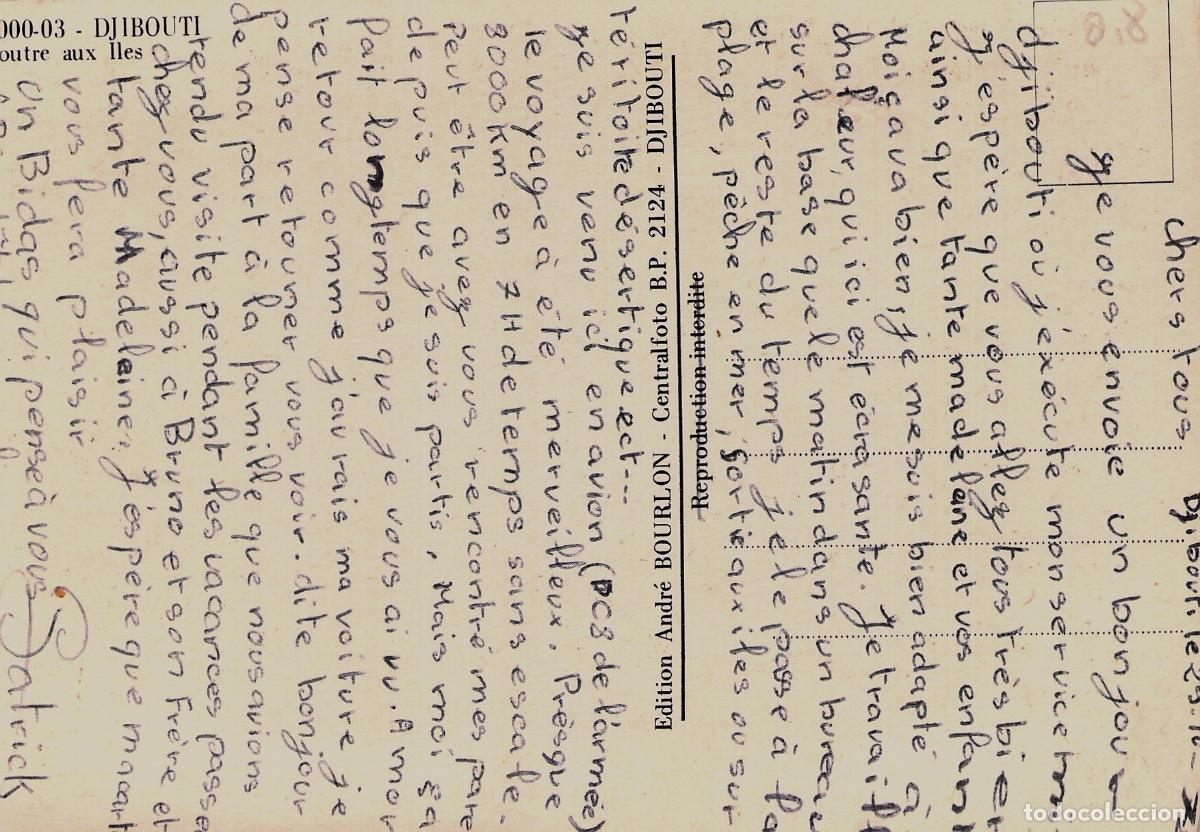 Djibouti le 29-10-
chers tous
Je vous envoie un bonjour
Djibouti où j'exécute mon service m
J'espère que vous allez tous très bien
ainsi que tante madelane et vos enfan
Moi ça va bien, je me suis bien adapté à
chaleur, qui ici est écrasante. Je travail
sur la base que le matin dans un bureau
et le reste du temps je le passe à la
plage, pêche en mer, sortie aux iles ou sur
Reproduction interdite
Edition André BOURLON - Centralfoto B.P. 2124 - DJIBOUTI
téritoite désertique ect---
Je suis venu ici en avion (DC8 de l'armée)
le voyage à été merveilleux. Prèsque
9000 Km en 7H de temps sans escale.
Peut être avez vous rencontré mes pare
depuis que je suis partis. Mais moi ça
fait longtemps que je vous ai vu. A mon
retour comme j'aurais ma voiture je
pense retourner vous voir. dite bonjour
de ma part à la famille que nous avions
rendu visite pendant les vacances passe
chez vous, aussi à Bruno et son Frère et
tante Madeleine. J'espère que macart
vous fera plaisir
Un Bidas qui pense à vous
Patrick
000-03 - DJIBOUTI
outre aux Iles
todocoleccion